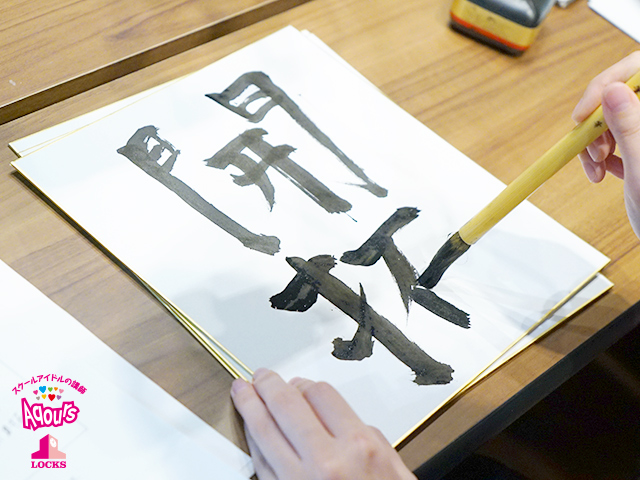 開
スクールアイドルの講師
Aqours
LOCKS